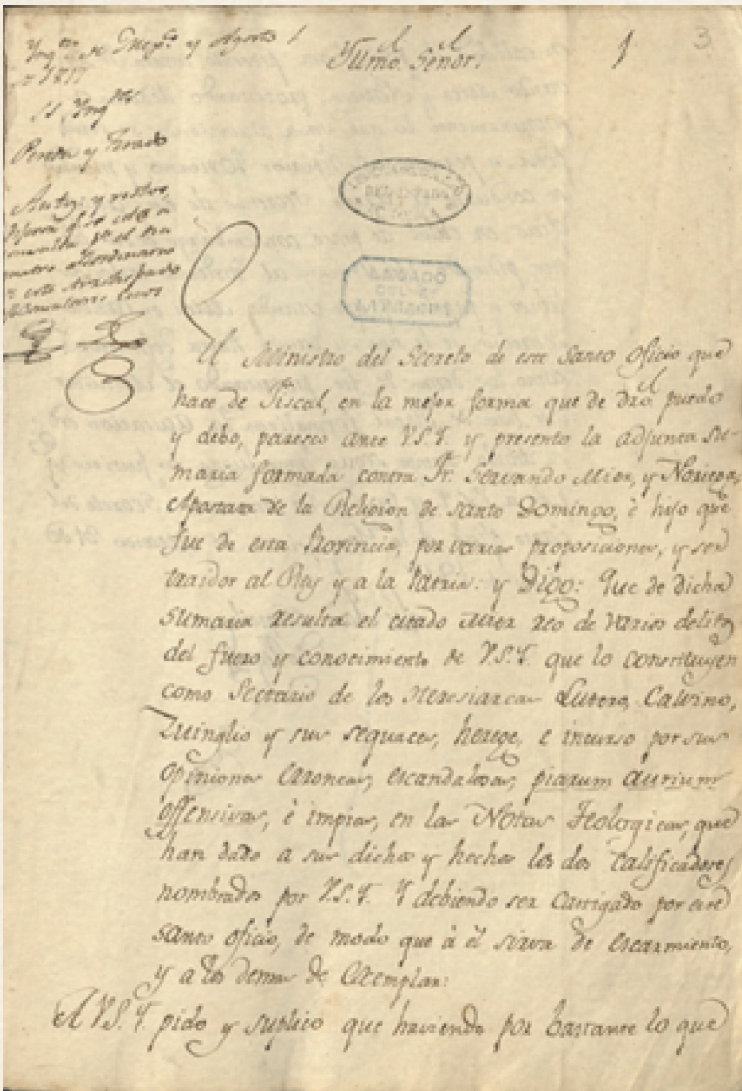 Yllmo. Señor:
1
3
Ynq.on de Mex.co y Agosto 1
1817
SS Ynq.res
Pereda y Tirado
Autos: y
El Ministro del Secreto de este Santo Oficio que
hace de Fiscal, en la mejor forma que de Dro. puedo
y debo, paresco ante V.S.Y. y presento la adjunta Su-
maria formada contra Fr. Servando Mier, y Noriega,
Apostata de la Religion de Santo Domingo, è hijo que
fue de esta Provincia, por varias proposiciones, y ser
traidor al Rey y a la Patria: y Digo: Que de dicha
Sumaria resulta el citado Mier reo de varios delitos
del fuero y conocimiento de V.S.Y. que lo constituyen
como Sectario de los Heresiarcas Lutero, Calvino,
Zuinglio y sus sequaces, herege, e incurso por sus
opiniones erroneas, escandalosas, piarum aurium
offensivas, è impias, en las Notas Teologicas, que
han dado a sus dichos y hechos los dos Calificadores
nombrados por V.S.Y. Y debiendo ser Castigado por este
Santo oficio, de modo que à él sirva de escarmiento,
y a los demas de Exemplar:
A V.S.Y. pido y suplico que haviendo por bastante lo que